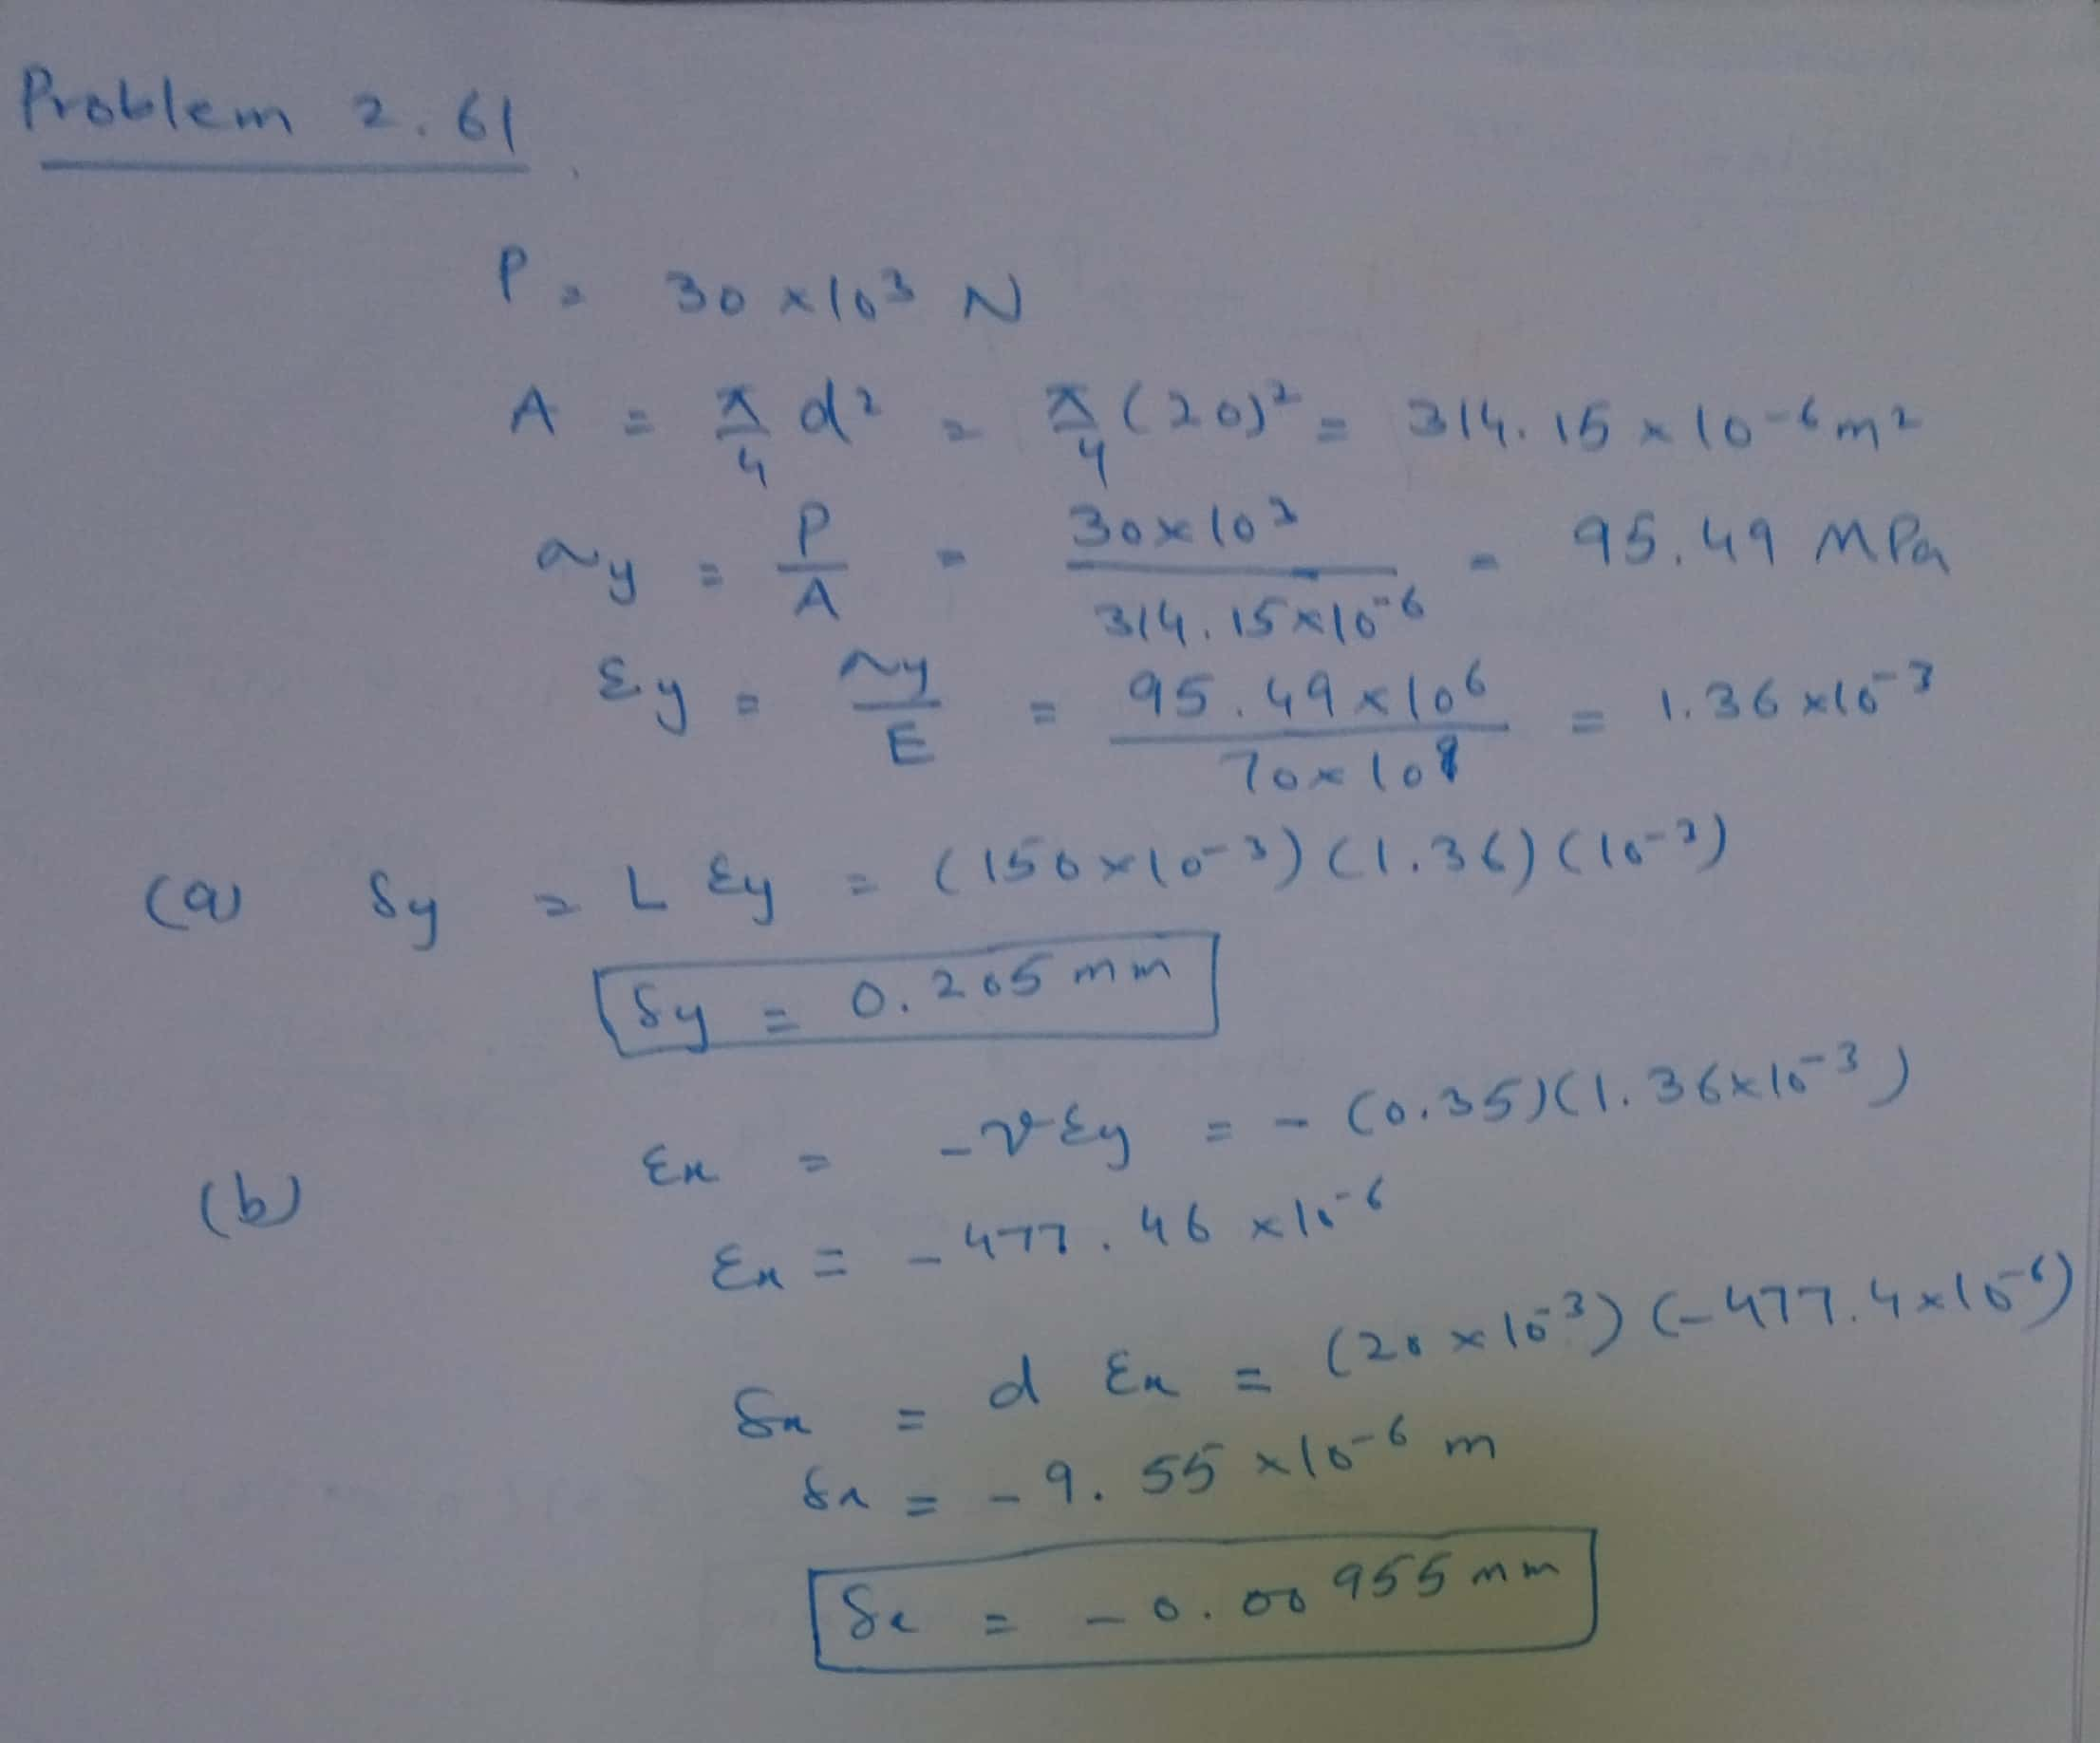 Problem 2.61
P = 30 x 10³ N
A = π/4 d² = π/4 (20)² = 314.15 x 10⁻⁶ m²
σy = P/A = 30x10³ / 314.15x10⁻⁶ = 95.49 MPa
εy = σy/E = 95.49x10⁶ / 70x10⁹ = 1.36 x10⁻³
(a) δy = L εy = (150x10⁻³) (1.36) (10⁻³)
δy = 0.205 mm
(b) εx = -νεy = - (0.35)(1.36x10⁻³)
εx = -477.46 x10⁻⁶
δx = d εx = (20 x 10⁻³) (-477.4x10⁻⁶)
δx = -9.55 x10⁻⁶ m
δx = -0.00955 mm